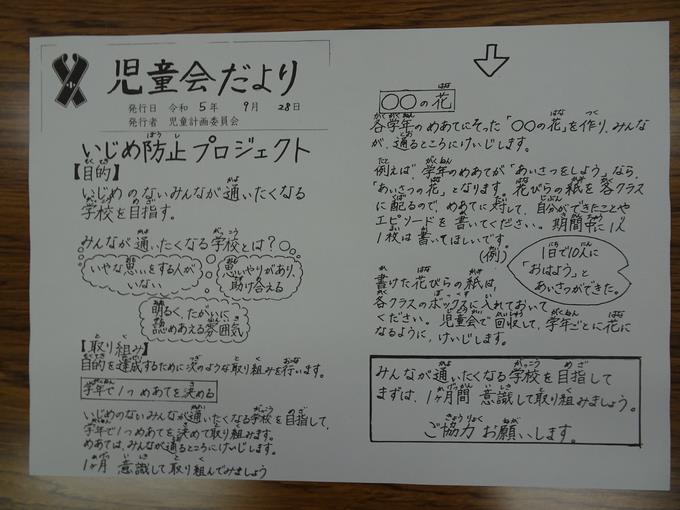 児童会だより
発行日 令和 5年 9月 28日
発行者 児童計画委員会
いじめ防止プロジェクト
【目的】
いじめのないみんなが通いたくなる
学校を目指す。
みんなが通いたくなる学校とは?
いやな思いをする人が
いない
思いやりがあり、
助け合える
明るく、たがいに
認めあえる雰囲気
【取り組み】
目的を達成するために次のような取り組みを行います。
学年で1つめあてを決める
いじめのないみんなが通いたくなる学校を目指して、
学年で1つめあてを決めて取り組みます。
めあては、みんなが通るところにけいじします。
1ヶ月 意識して取り組んでみましょう
○○の花
各学年のめあてにそった「○○の花」を作り、みんな
が、通るところにけいじします。
例えば、学年のめあてが「あいさつをしよう」なら、
「あいさつの花」となります。花びらの紙を各クラス
に配るので、めあてに対して、自分ができたことや
エピソードを書いてください。期間中に1人
1枚は書いてほしいです。
(例)
1日で10人に
「おはよう」と
あいさつができた。
書けた花びらの紙は、
各クラスのボックスに入れておいて
ください。児童会で回収して、学年ごとに花に
なるように、けいじします。
みんなが通いたくなる学校を目指して
まずは、1ヶ月間 意識して取り組みましょう。
ご協力お願いします。